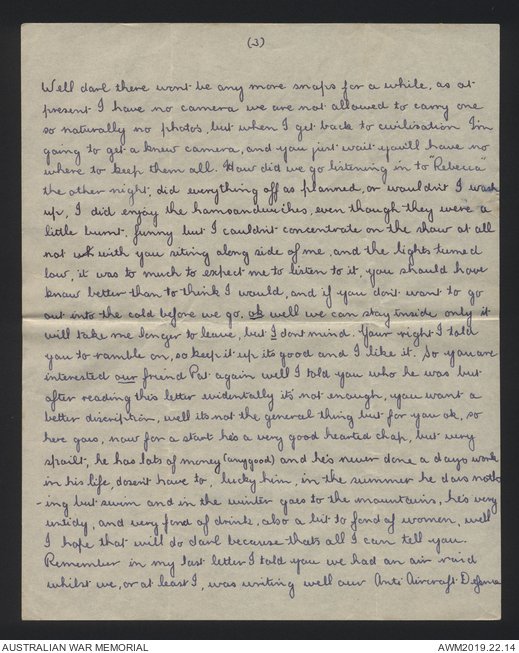 (3)
Well darl there wont be any more snaps for a while, as at
present I have no camera we are not allowed to carry one
so naturally no photos, but when I get back to civilisation I'm
going to get a knew camera, and you just wait you'll have no
where to keep them all. How did we go listening in to "Rebecca"
the other night, did everything go off as planned, or wouldn't I wash
up, I did enjoy the hamsandwiches, even though they were a
little burnt, funny but I couldn't concentrate on the show at all
not with you siting along side of me, and the lights turned
low, it was to much to expect me to listen to it, you should have
known better than to think I would, and if you don't want to go
out into the cold before we go, ok well we can stay inside only it
will take me longer to leave, but I dont mind. Your right I told
you to ramble on, so keep it up its good and I like it. So you are
interested our friend Pat again well I told you who he was but
after reading this letter evidentally its not enough, you want a
better discription, well its not the general thing but for you ok, so
here goes, now for a start he's a very good hearted chap, but very
spoilt, he has lots of money (any good) and he's never done a days work
in his life, dosen't have to, lucky him, in the summer he does noth
-ing but swim and in the winter goes to the mountains, he's very
untidy, and very fond of drink, also a bit to fond of women, well
I hope that will do darl because thats all I can tell you.
Remember in my last letter I told you we had an air raid
whilst we, or at least I, was writing well our Anti Aircraft Defence
AUSTRALIAN WAR MEMORIAL
AWM2019.22.14